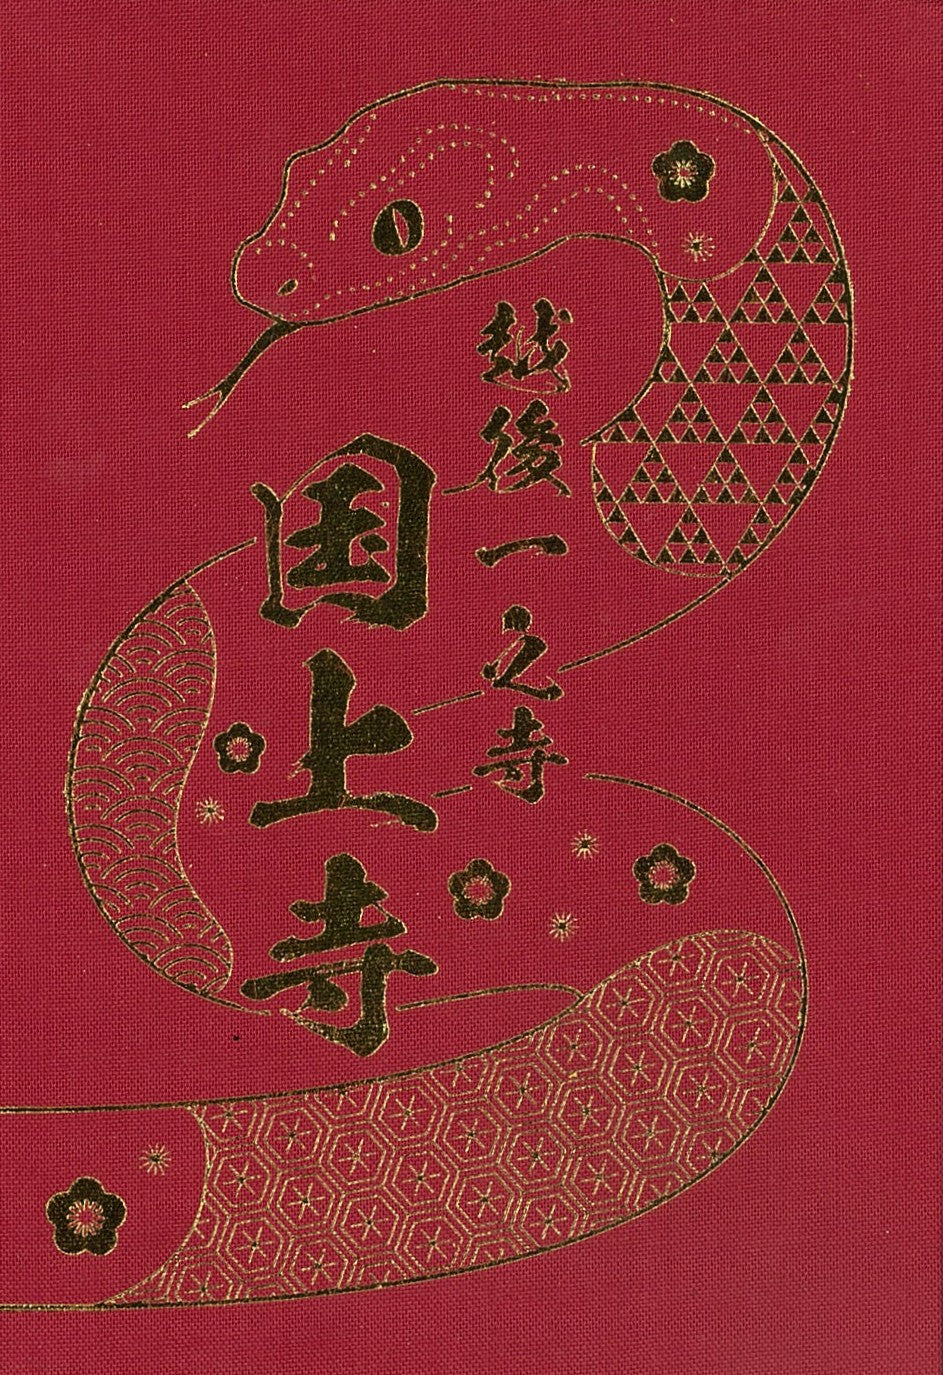 越後一之寺
国上寺